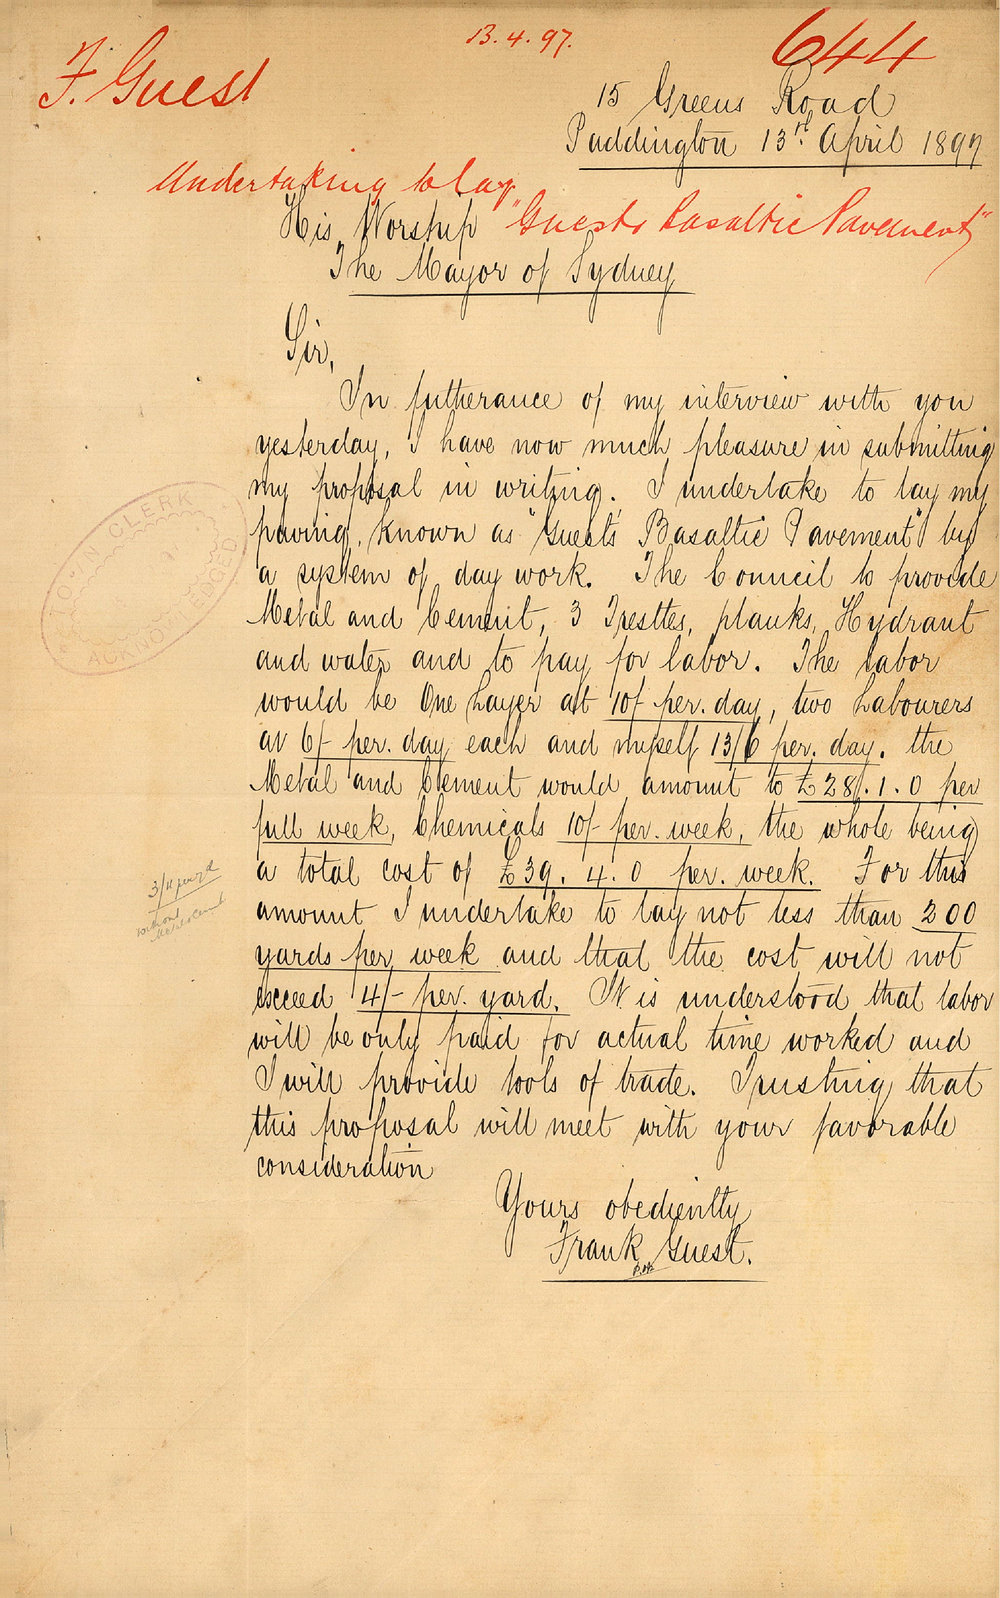 F. Guest
13.4.97.
644
15 Greens Road
Paddington 13th. April 1897
Undertaking to lay
"Guests Basaltic Pavement"
His Worship
The Mayor of Sydney
Sir,
In futherance of my interview with you
yesterday, I have now much pleasure in submitting
my proposal in writing. I undertake to lay my
paving, known as "Guest's Basaltic Pavement" by
a system of day work. The Council to provide
Metal and Cement, 3 Trestles, planks, Hydrant
and water and to pay for labor. The labor
would be One Layer at 10/- per. day, two Labourers
at 6/- per. day each and myself 13/6 per. day. the
Metal and Cement would amount to £28.1.0 per
full week, Chemicals 10/- per. week, the whole being
a total cost of £39.4.0 per. week. For this
amount I undertake to lay not less than 200
yards per week and that the cost will not
exceed 4/- per. yard. It is understood that labor
will be only paid for actual time worked and
I will provide tools of trade. Trusting that
this proposal will meet with your favorable
consideration
Yours obediently
Frank Guest.
TOWN CLERK
97
ACKNOWLEDGED
3/11 per yd
without